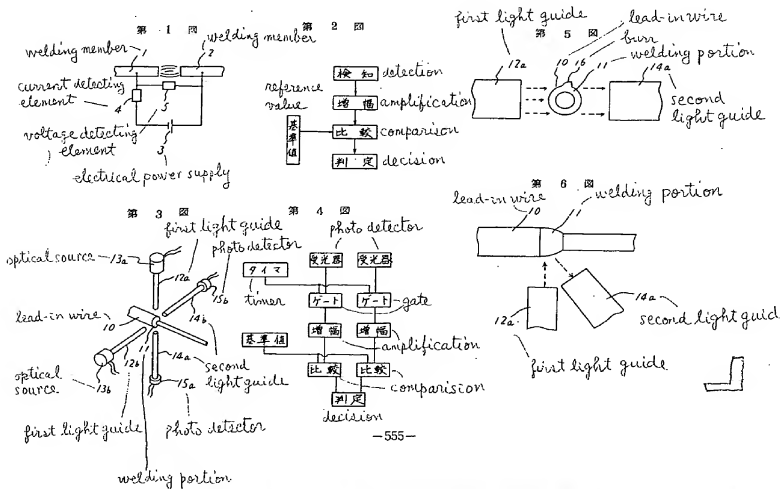 第 1 図
welding member
welding member
1
2
current detecting
element
4
5
voltage detecting
element
3
electrical power supply
第 2 図
検知
detection
reference
value
増幅
amplification
基準値
比較
comparison
判定
decision
第 5 図
first light guide
lead-in wire
burr
welding portion
12a
10
16
11
14a
second
light guide
第 3 図
first light guide
photo detector
optical source
13a
12a
15b
lead-in wire
10
14b
11
14a
second
light guide
12b
optical
source
13b
15a
first light guide
photo detector
welding portion
第 4 図
photo detector
受光器
受光器
タイマ
timer
ゲート
ゲート
gate
基準値
増幅
増幅
amplification
比較
比較
comparision
判定
decision
第 6 図
lead-in wire
welding portion
10
11
12a
14a
second light guid
first light guide
—555—